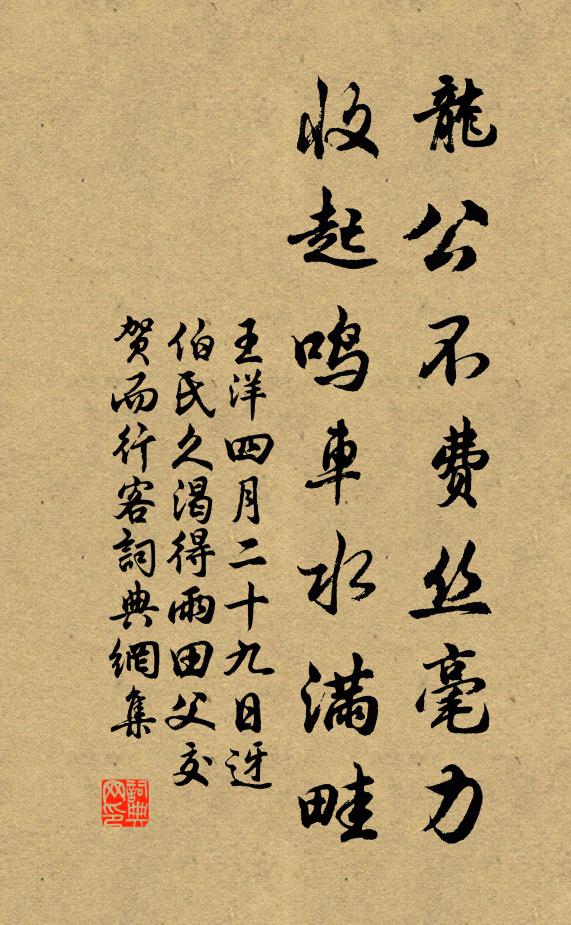 龍公不费丝毫力
收起鸣車水满畦
王洋四月二十九日迓
伯氏久渴得雨田父交
贺而行客詞典網集
詞典网印